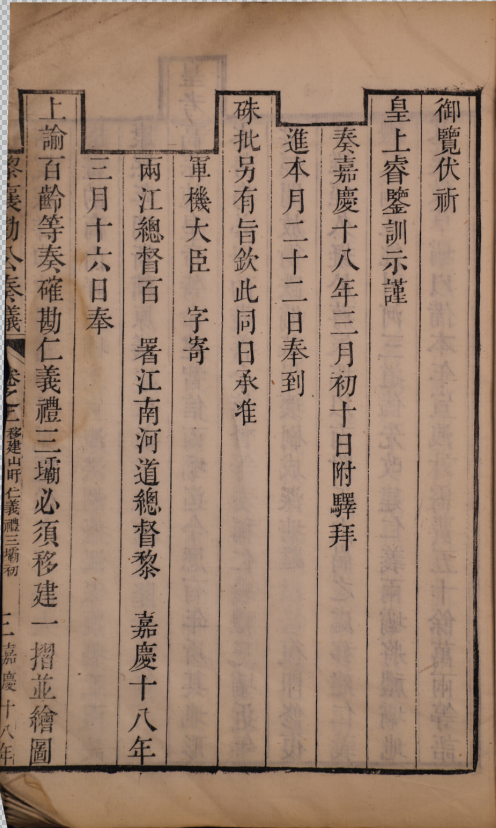 御覽伏祈
皇上睿鑒訓示謹
奏嘉慶十八年三月初十日附驛拜
進本月二十二日奉到
硃批另有旨欽此同日承准
軍機大臣 字寄
兩江總督百 署江南河道總督黎 嘉慶十八年
三月十六日奉
上諭百齡等奏確勘仁義禮三壩必須移建一摺並繪圖
黎襄勤公奏議 卷之二 移建山盱仁義禮三壩初 三 嘉慶十八年